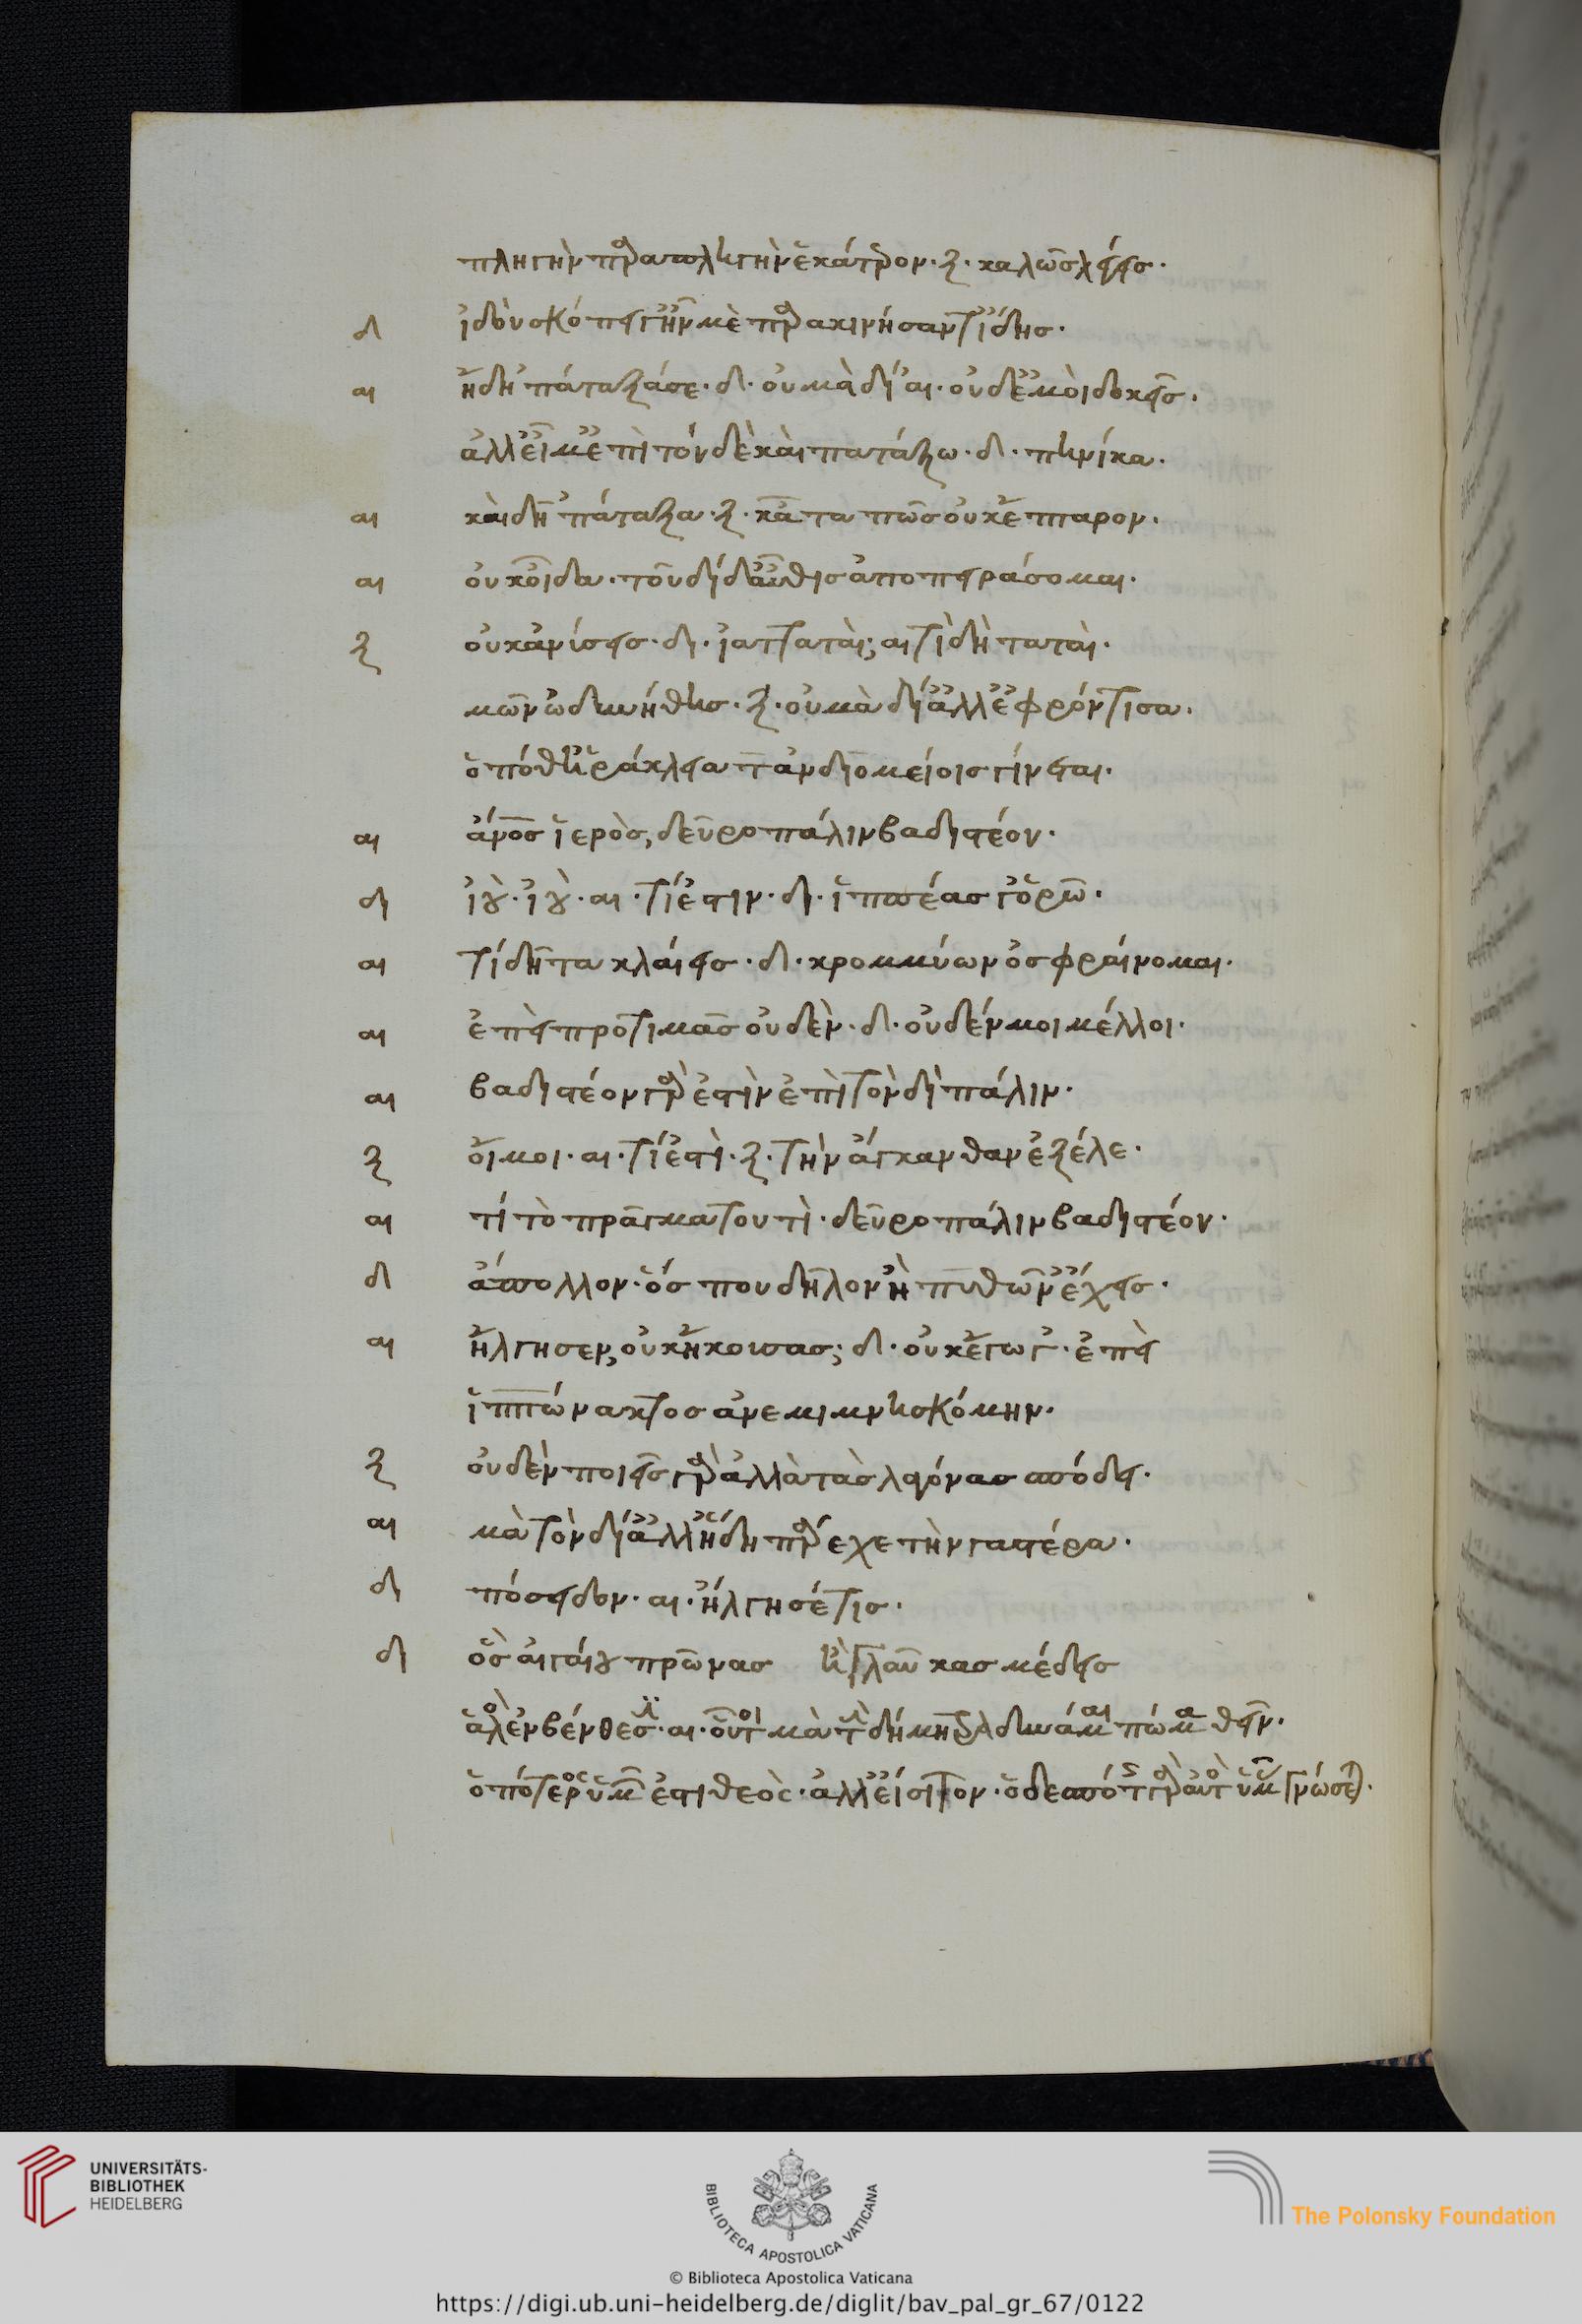 πληγὴν παρὰ πληγὴν ἑκάτερον. ξ. καλῶς λέγεις.
δι ἰδοὺ σκόπει γ' ἤν με παρακινήσαντ' ἴδης.
αι ἤδη 'πάταξά σε. δι. οὐ μὰ δί'. αι. οὐδ' ἐμοὶ δοκεῖς.
ἀλλ' εἶμ' ἐπὶ τόνδε καὶ πατάξω. δι. πηνίκα.
αι καὶ δὴ 'πάταξα. ξ. κᾆτα πῶς οὐκ ἔπταρον.
αι οὐκ οἶδα. τοῦ δὶ δ' αὖθις ἀποπειράσομαι.
ξ οὐκ ἀνύσεις. δι. ἰατταταί; αι τί δὴ ταταί.
μῶν ὠδυνήθης. ξ. οὐ μὰ δί' ἀλλ' ἐφρόντισα.
ὁπόθ' ἡράκλεια τἀν διομείοις γίνεται.
αι ἄνος ἱερός, δεῦρο πάλιν βαδιστέον.
δι ἰοὺ. ἰοὺ. αι. τί ἐστιν. δι. ἱππέας γ' ὁρῶ.
αι τί δῆτα κλάεις. δι. κρομμύων ὀσφραίνομαι.
αι ἐπεὶ προτιμᾶς οὐδὲν. δι. οὐδέν μοι μέλλοι.
αι βαδιστέον γὰρ ἐστὶν ἐπὶ τὸν δὶ πάλιν.
ξ οἴμοι. αι. τί ἐστὶ. ξ. τὴν ἄκανθαν ἔξελε.
αι τί τὸ πρᾶγμα τουτὶ. δεῦρο πάλιν βαδιστέον.
δι ἄπολλον. ὅς που δῆλον ἢ πυθῶν' ἔχεις.
αι ἤλγησεν, οὐκ ἤκουσας; δι. οὐκ ἔγωγ'. ἐπεὶ
ἱππώνακτος ἀνεμιμνησκόμην.
ξ οὐδὲν ποιεῖς γὰρ ἀλλὰ τὰς λαγόνας σπόδει.
αι μὰ τὸν δί' ἀλλ' ἤδη πάρεχε τὴν γαστέρα.
δι πόσειδον. αι. ἤλγησέ τις.
δι ὃς αἰγαίου πρῶνας ἢ γλαυκᾶς μέδεις
ἁλὸς ἐν βένθεσιν. αι. οὔτοι μὰ τὴν δήμητρα δύναμαί πω μαθεῖν.
ὁπότερος ὑμῶν ἐστι θεός. ἀλλ' εἴσιτον. ὁ δεσπότης γὰρ αὐτὸς ὑμᾶς γνώσεται.
UNIVERSITÄTS-
BIBLIOTHEK
HEIDELBERG
BIBLIOTECA APOSTOLICA VATICANA
The Polonsky Foundation
© Biblioteca Apostolica Vaticana
https://digi.ub.uni-heidelberg.de/diglit/bav_pal_gr_67/0122